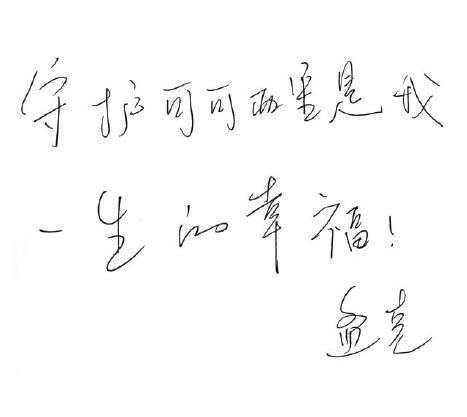 守护可可西里是我
一生的幸福！
孟克